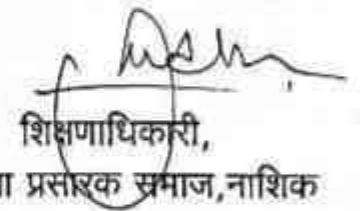 शिक्षणाधिकारी,
प्रसारक समाज,नाशिक